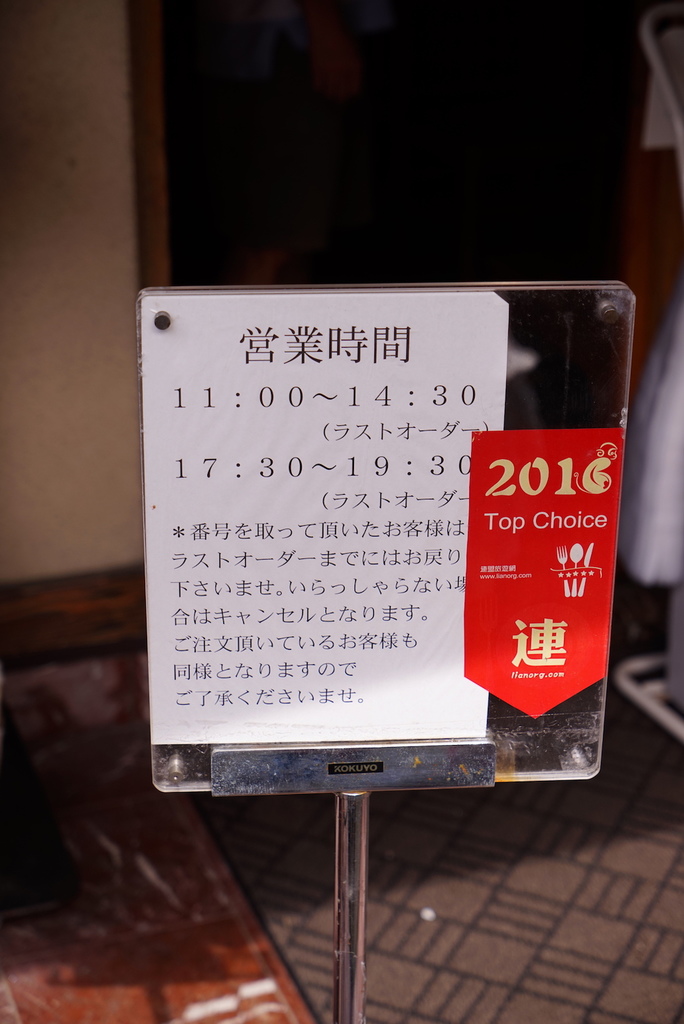 営業時間
11:00～14:30
(ラストオーダー)
17:30～19:30
(ラストオーダー
＊番号を取って頂いたお客様は
ラストオーダーまでにはお戻り
下さいませ。いらっしゃらない場
合はキャンセルとなります。
ご注文頂いているお客様も
同様となりますので
ご了承くださいませ。
2016
Top Choice
連盟旅遊網
www.lianorg.com
連
lianorg.com
KOKUYO